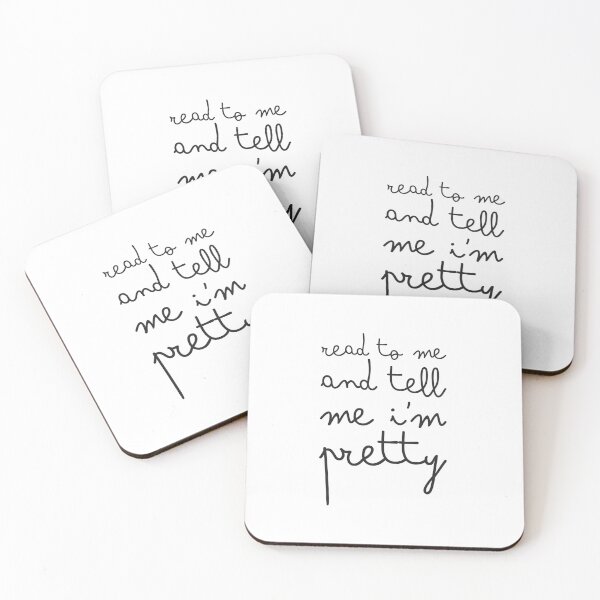 read to me
and tell
me i'm
pretty
read to me
and tell
me i'm
pretty
read to me
and tell
me i'm
pretty
read to me
and tell
me i'm
pretty